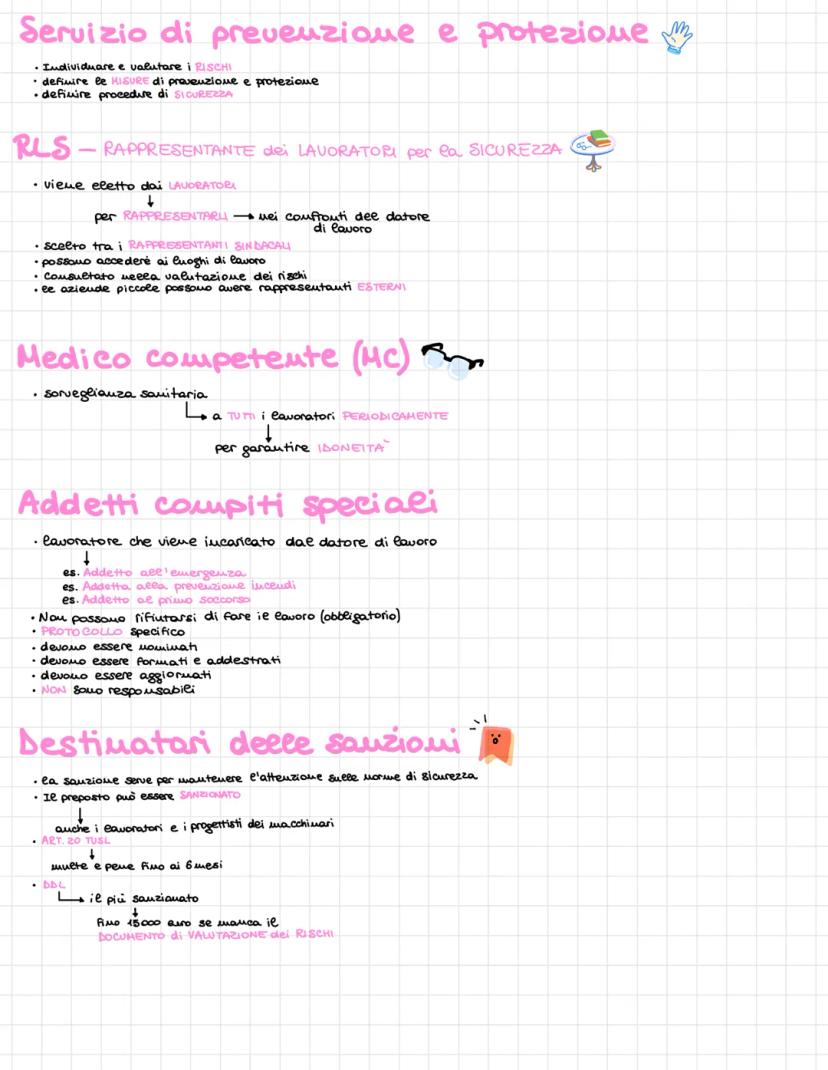 Servizio di prevenzione e protezione
• Individuare e valutare i RISCHI
• definire le MISURE di prevenzione e protezione
• definire procedure di SICUREZZA
RLS — RAPPRESENTANTE dei LAVORATORI per la SICUREZZA
• viene eletto dai LAVORATORI
↓
per RAPPRESENTARLI → nei confronti del datore
di lavoro
• scelto tra i RAPPRESENTANTI SINDACALI
• possono accedere ai luoghi di lavoro
• consultato nella valutazione dei rischi
• le aziende piccole possono avere rappresentanti ESTERNI
Medico competente (MC)
• sorveglianza sanitaria
↳ a TUTTI i lavoratori PERIODICAMENTE
↓
per garantire IDONEITA`
Addetti compiti speciali
• lavoratore che viene incaricato dal datore di lavoro
↓
es. Addetto all'emergenza
es. Addetta alla prevenzione incendi
es. Addetto al primo soccorso
• Non possono rifiutarsi di fare il lavoro (obbligatorio)
• PROTOCOLLO specifico
• devono essere nominati
• devono essere formati e addestrati
• devono essere aggiornati
• NON sono responsabili
Destinatari delle sanzioni
• la sanzione serve per mantenere l'attenzione sulle norme di sicurezza
• Il preposto può essere SANZIONATO
↓
anche i lavoratori e i progettisti dei macchinari
• ART. 20 TUSL
↓
multe e pene fino ai 6 mesi
• DDL
↳ il più sanzionato
↓
fino 15000 euro se manca il
DOCUMENTO di VALUTAZIONE dei RISCHI